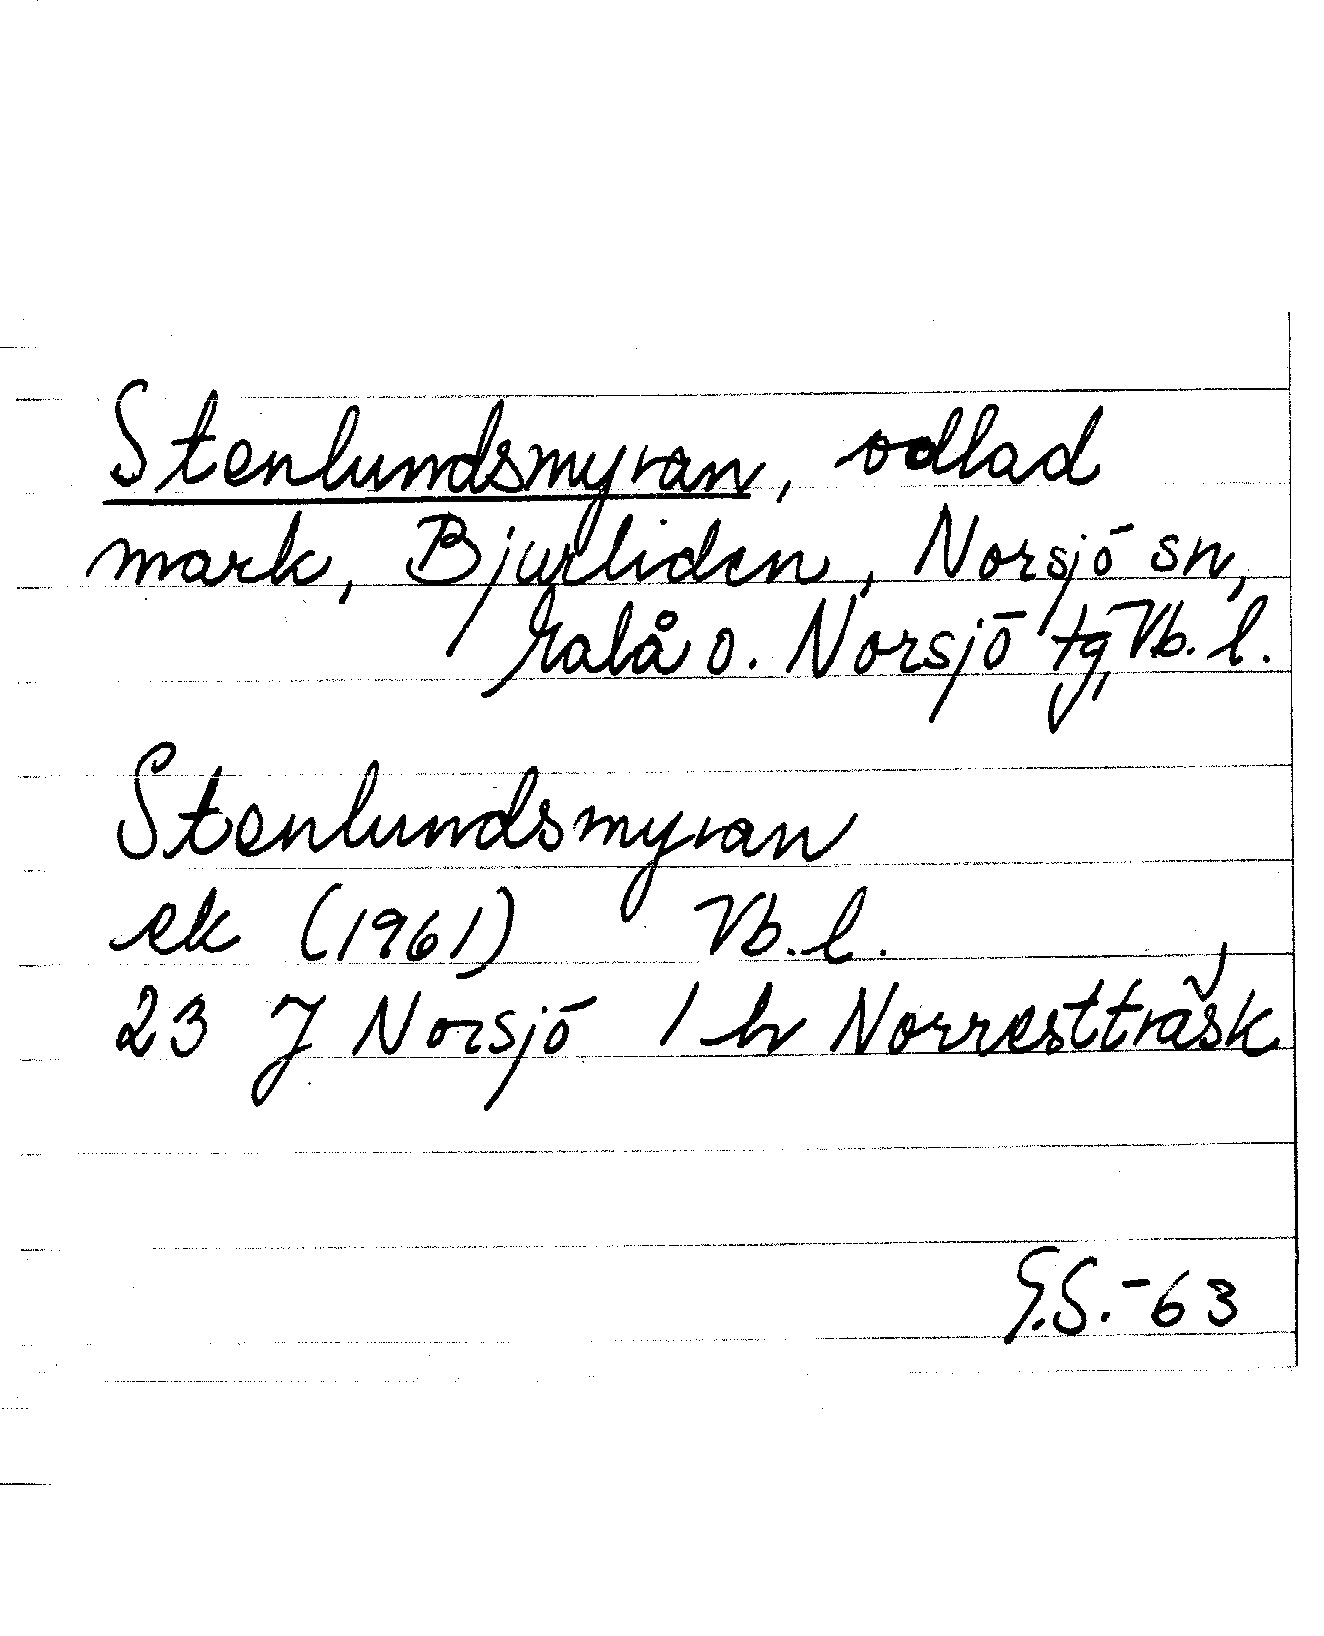 Stenlundsmyran, odlad
mark, Bjurliden, Norsjö sn,
Malå o. Norsjö tg, Vb. l.
Stenlundsmyran
ek (1961) Vb. l.
23 J Norsjö 1 h Norrestträsk
G.S.-63